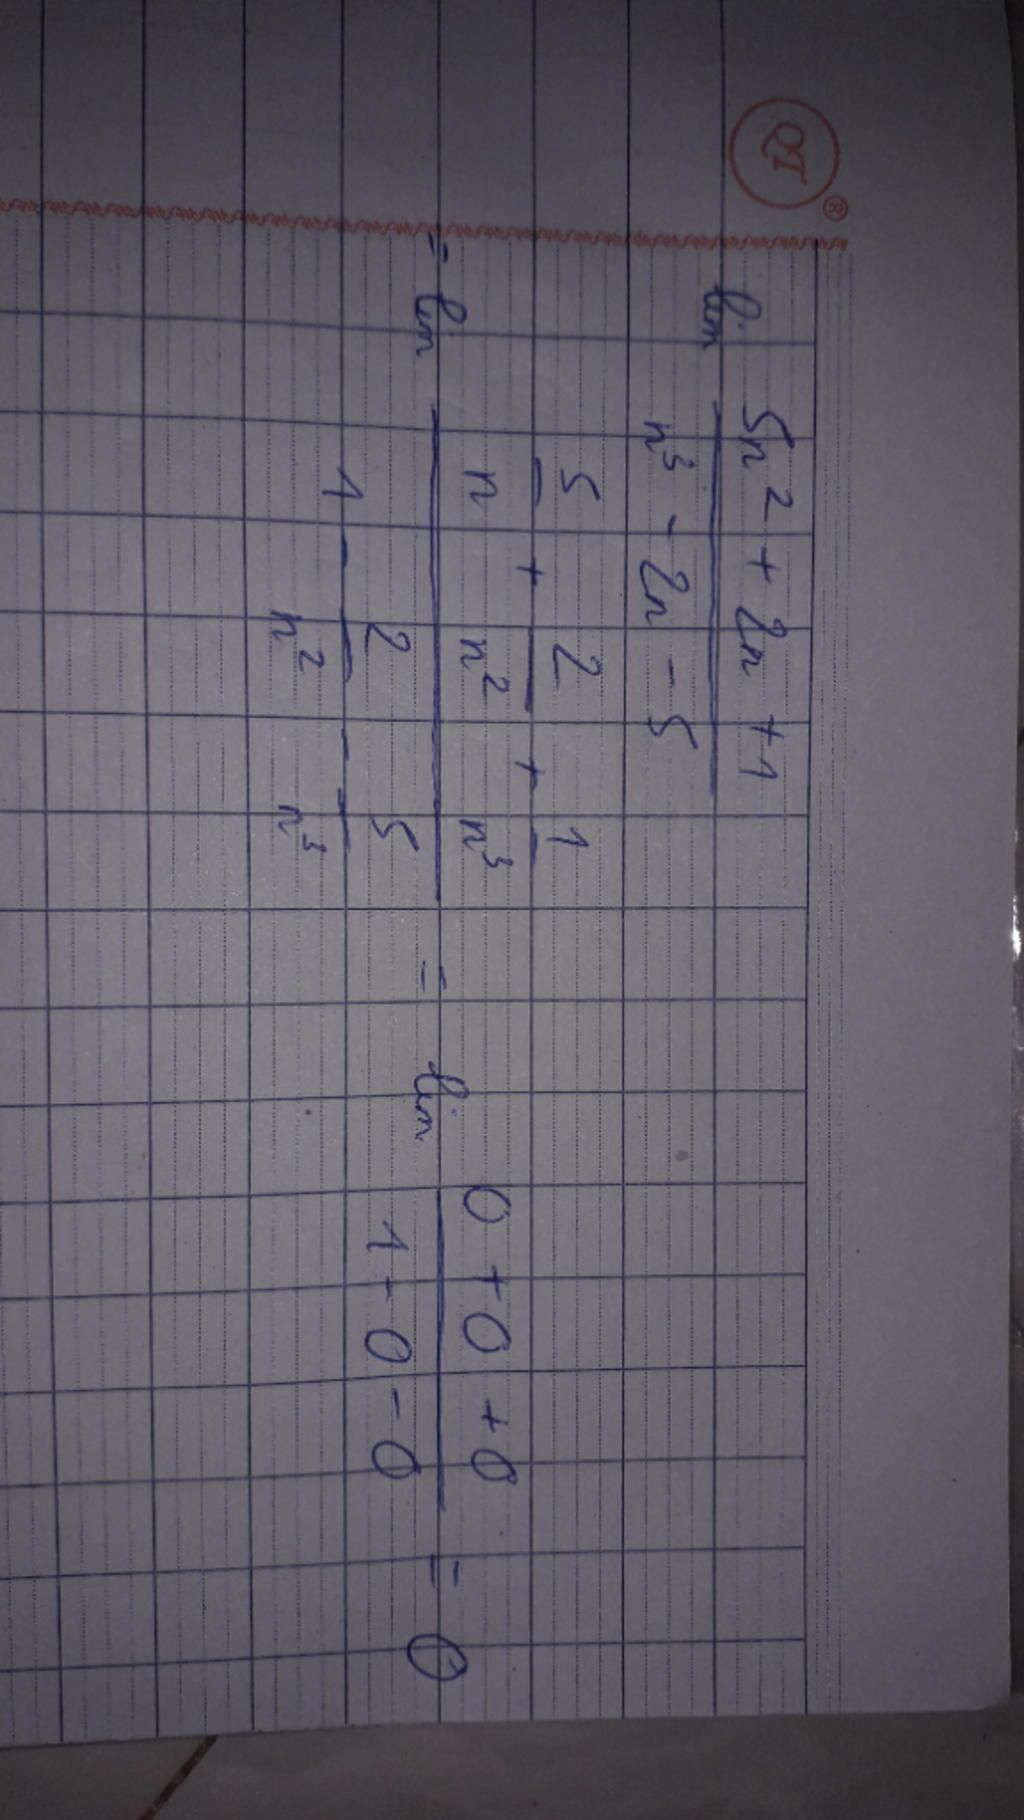 QT ®
lim (5n² + 2n + 1) / (n³ - 2n - 5)
= lim (5/n + 2/n² + 1/n³) / (1 - 2/n² - 5/n³) = lim (0 + 0 + 0) / (1 - 0 - 0) = 0